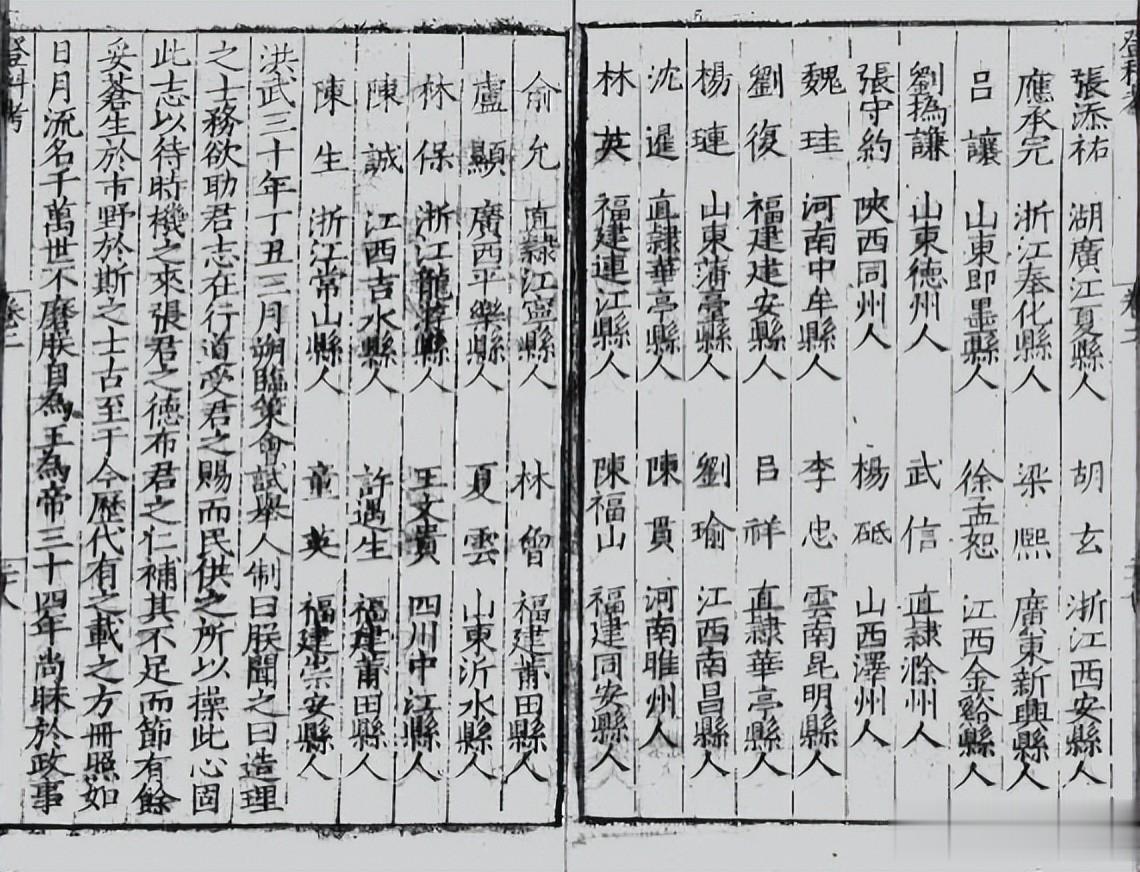 登科考 卷二
張添祐 湖廣江夏縣人 胡玄 浙江西安縣人
應承完 浙江奉化縣人 梁熈 廣東新興縣人
吕讓 山東即墨縣人 徐孟恕 江西金谿縣人
劉撝謙 山東德州人 武信 直隷滁州人
張守約 陝西同州人 楊砥 山西澤州人
魏珪 河南中牟縣人 李忠 雲南昆明縣人
劉復 福建建安縣人 吕祥 直隷華亭縣人
楊璉 山東蒲臺縣人 劉瑜 江西南昌縣人
沈暹 直隷華亭縣人 陳貫 河南睢州人
林英 福建連江縣人 陳福山 福建同安縣人
俞允 直隷江寧縣人 林曾 福建莆田縣人
盧顯 廣西平樂縣人 夏雲 山東沂水縣人
林保 浙江龍游縣人 王文貴 四川中江縣人
陳誠 江西吉水縣人 許遇生 福建莆田縣人
陳生 浙江常山縣人 童英 福建崇安縣人
洪武三十年丁丑三月朔臨策會試舉人制曰朕聞之曰造理
之士務欲助君志在行道受君之賜而民供之所以操此心固
此志以待時機之來張君之德布君之仁補其不足而節有餘
妥蒼生於市野於斯之士古至于今歷代有之載之方冊照如
日月流名千萬世不磨朕自為王為帝三十四年尚昧於政事
登科考 卷二